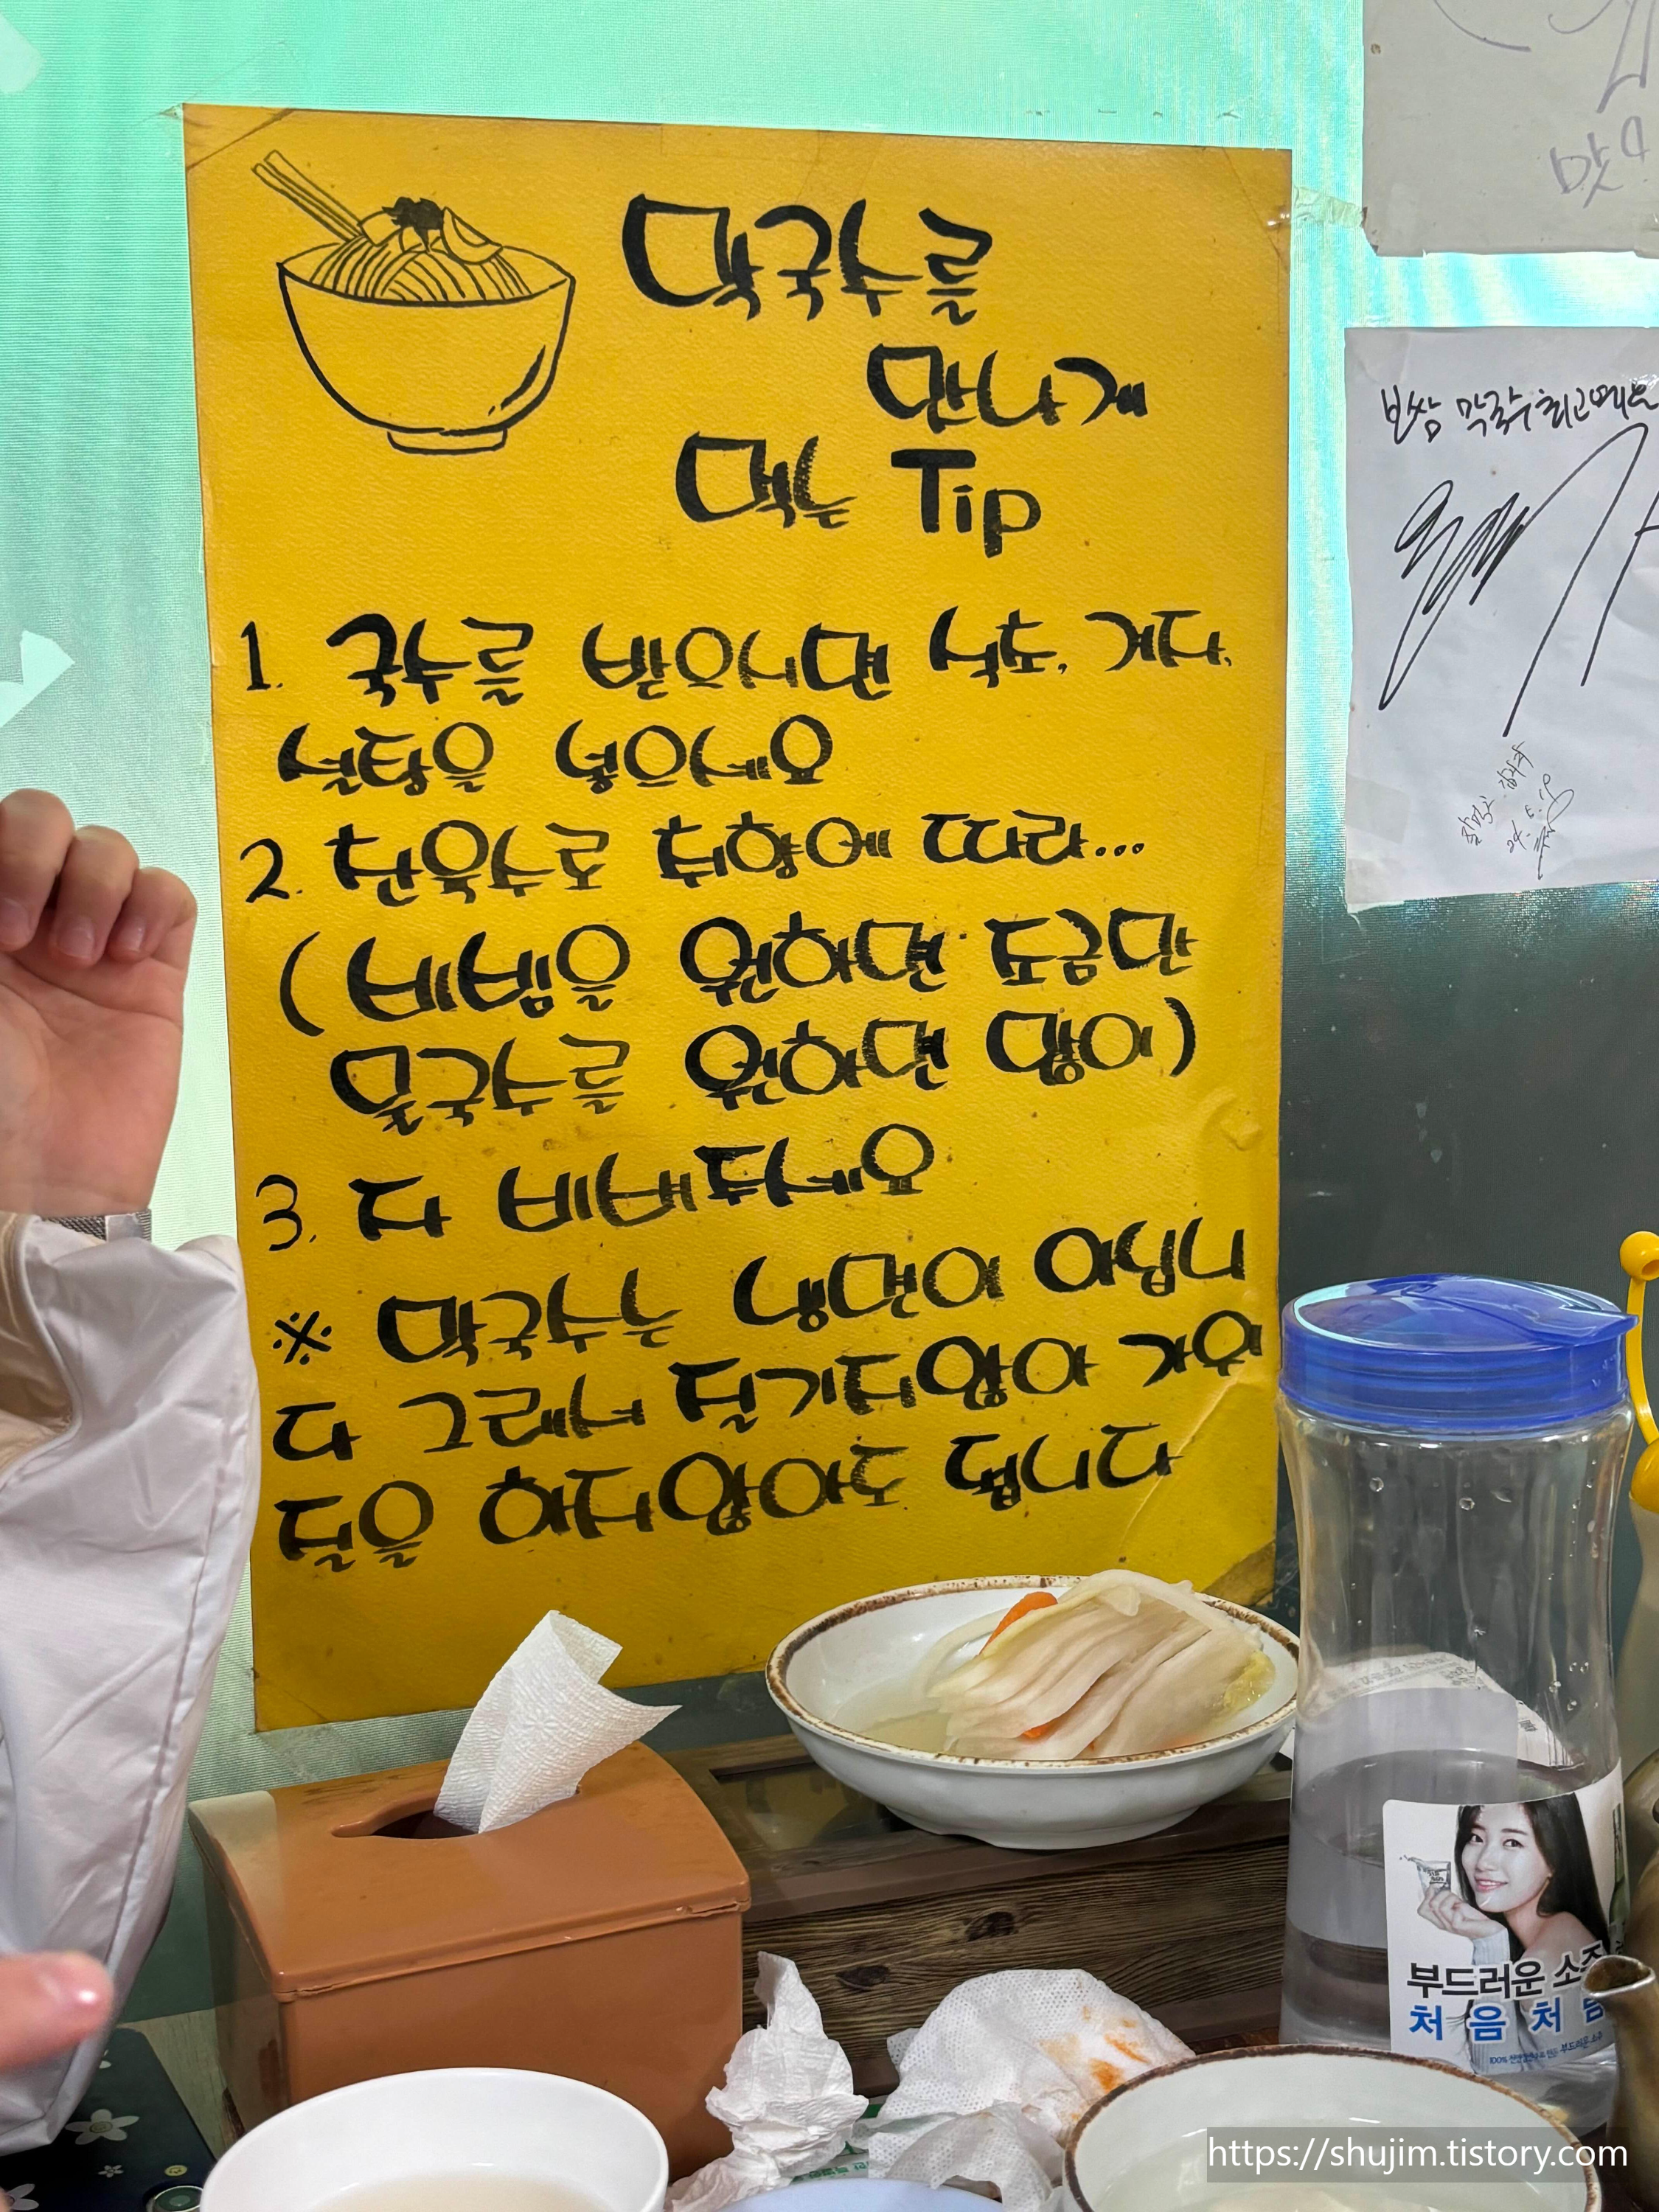 막국수를
만나게
먹는 Tip
1. 국수를 받으시면 식초, 겨자,
설탕을 넣으세요
2. 찬육수로 취향에 따라...
(비빔을 원하면 조금만
물국수를 원하면 많이)
3. 다 비벼주세요
※ 막국수는 냉면이 아닙니
다 그래서 질기지않아 가위
질을 하지않아도 됩니다
보쌈 막국수 최고예요
부드러운 소주
처음처럼
https://shujim.tistory.com